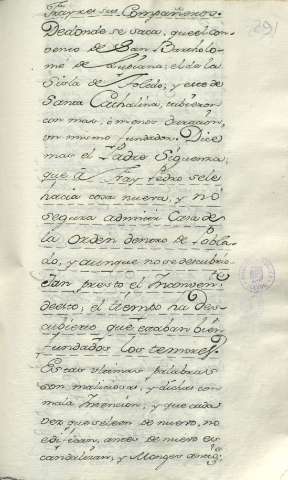 Frayres sus Compañeros.
De donde se saca, que el con-
vento de San Bartholo-
mé de Lupiana; el de la
Sisla de Toledo; y este de
Santa Cathalina, tubieron
con mas, ó menos duracion,
un mismo fundador. Dice
mas el Padre Siguenza,
que á Fray Pedro se le
hacia cosa nueva, y nó
segura admitir Casa de
la Orden dentro de Pobla-
do, y aunque no se descubrio
tan presto el Inconven.te
decirlo; el tiempo ha Des-
cubierto, que estaban bien
fundados los temores.
Estas ultimas palabras
son maliciosas, y dichas con
mala Intencion; y que cada
vez que se leen de nuevo, no
edifican, antes de nuevo es-
candalizan, y Monges
291